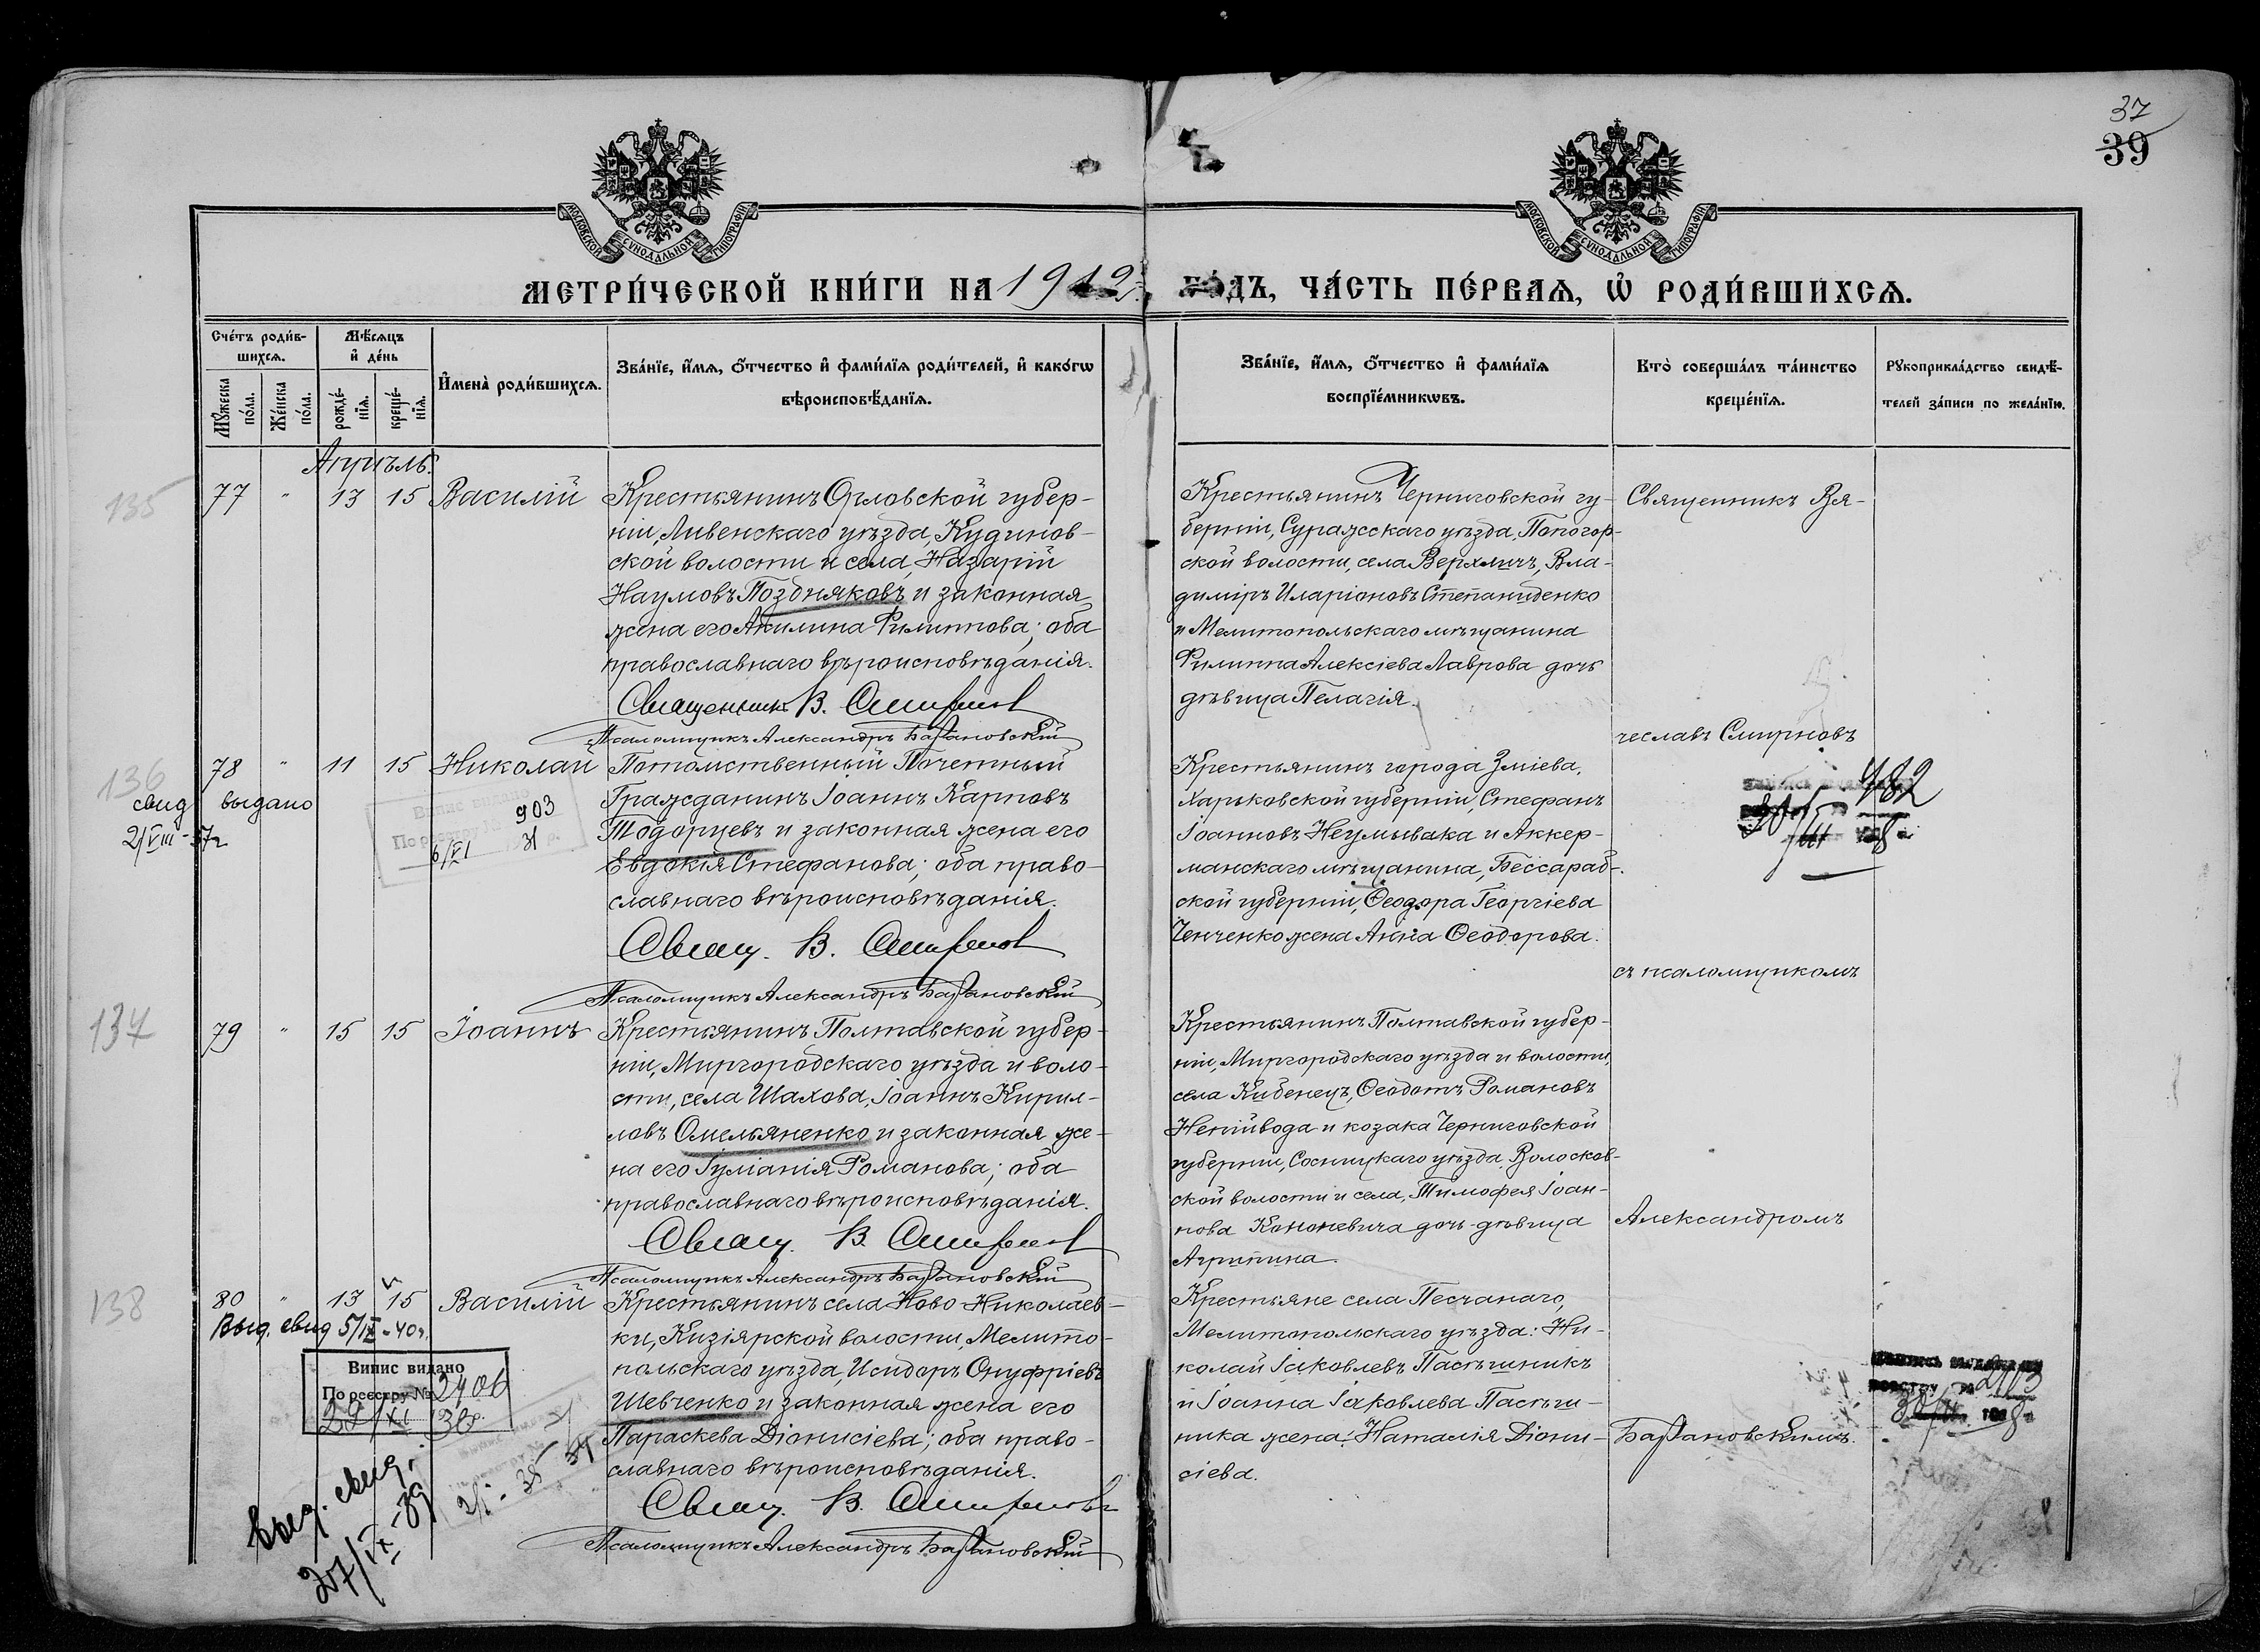 37
39
МОСКОВСКОЙ СѴНОДАЛЬНОЙ ТИПОГРАФІИ
МОСКОВСКОЙ СѴНОДАЛЬНОЙ ТИПОГРАФІИ
МЕТРИ́ЧЕСКОЙ КНИ́ГИ НА 1912 ГО́ДЪ, ЧА́СТЬ ПЕ́РВАѦ, Ѽ РОДИ́ВШИХСѦ.
Сче́тъ роди́в-
шихсѧ.
Мꙋ́жеска по́ла.
Же́нска по́ла.
Мѣ́сѧцъ
и҆ де́нь
рожде́-нїѧ.
креще́-нїѧ.
И҆мена̀ роди́вшихсѧ.
Зва́нїе, и҆́мѧ, ѻ҆́тчество и҆ фами́лїѧ роди́телей, и҆ како́гѡ
вѣроисповѣ́данїѧ.
Зва́нїе, и҆́мѧ, ѻ҆́тчество и҆ фами́лїѧ
воспрїе́мникѡвъ.
Кто̀ соверша́лъ та́инство
креще́нїѧ.
Рꙋкоприкла́дство свидѣ́-
телей за́писи по жела́нїю.
Апрѣль.
135
77 " 13 15 Василій
Крестьянинъ Орловской губер-
ніи, Ливенскаго уѣзда, Кудинов-
ской волости и села, Назарій
Наумовъ Поздняковъ и законная
жена его Акилина Филиппова; оба
православнаго вѣроисповѣданія.
Священникъ В. Смирнов
Псаломщикъ Александръ Баттановскій
Крестьянинъ Черниговской гу-
берніи, Суражскаго уѣзда, Попогор-
ской волости, села Верхличъ, Вла-
диміръ Иларіоновъ Степаниденко
и Мелитопольскаго мѣщанина
Филиппа Алексіева Лаврова дочь
дѣвица Пелагія.
Священникъ Вя-
чеславъ Смирновъ
136
78 " 11 15 Николай
свид выдано
2/VIII-37г
Випис видано
По реєстру № 903
6/VI 31 р.
Потомственный Почетный
Гражданинъ Іоаннъ Карповъ
Тодорцевъ и законная жена его
Евдокія Стефанова; оба право-
славнаго вѣроисповѣданія.
Свящ. В. Смирнов
Псаломщикъ Александръ Баттановскій
Крестьянинъ города Зміева,
Харьковской губерніи, Стефанъ
Іоанновъ Неумывака и Аккер-
манскаго мѣщанина, Бессараб-
ской губерніи, Ѳеодора Георгіева
Ченченко жена Анна Ѳеодорова.
съ псаломщикомъ
482
137
79 " 15 15 Іоаннъ
Крестьянинъ Полтавской губер-
ніи, Миргородскаго уѣзда и воло-
сти, села Шахова, Іоаннъ Кирил-
ловъ Омельяненко и законная же-
на его Іуліанія Романова; оба
православнаго вѣроисповѣданія.
Свящ. В. Смирнов
Псаломщикъ Александръ Баттановскій
Крестьянинъ Полтавской губер-
ніи, Миргородскаго уѣзда и волости,
села Кибенецъ, Ѳеодотъ Романовъ
Непійвода и козака Черниговской
губерніи, Сосницкаго уѣзда, Волосков-
ской волости и села, Тимофея Іоан-
нова Кононевича дочь-дѣвица
Агрипина.
Александромъ
138
80 " 13 15 Василій
Выд. свид 5/IX-40г.
Випис видано
По реєстру № 2406
выд. свид.
27/IX-39
Крестьянинъ села Ново-Николаев-
ки, Кизіярской волости, Мелито-
польскаго уѣзда, Исидоръ Онуфріевъ
Шевченко и законная жена его
Параскева Діонисіева; оба право-
славнаго вѣроисповѣданія.
Свящ. В. Смирновъ
Псаломщикъ Александръ Баттановскій
Крестьяне села Песчанаго,
Мелитопольскаго уѣзда: Ни-
колай Іаковлевъ Пасѣшникъ
и Іоанна Іаковлева Пасѣш-
ника жена: Наталія Діони-
сіева.
Баттановскимъ.